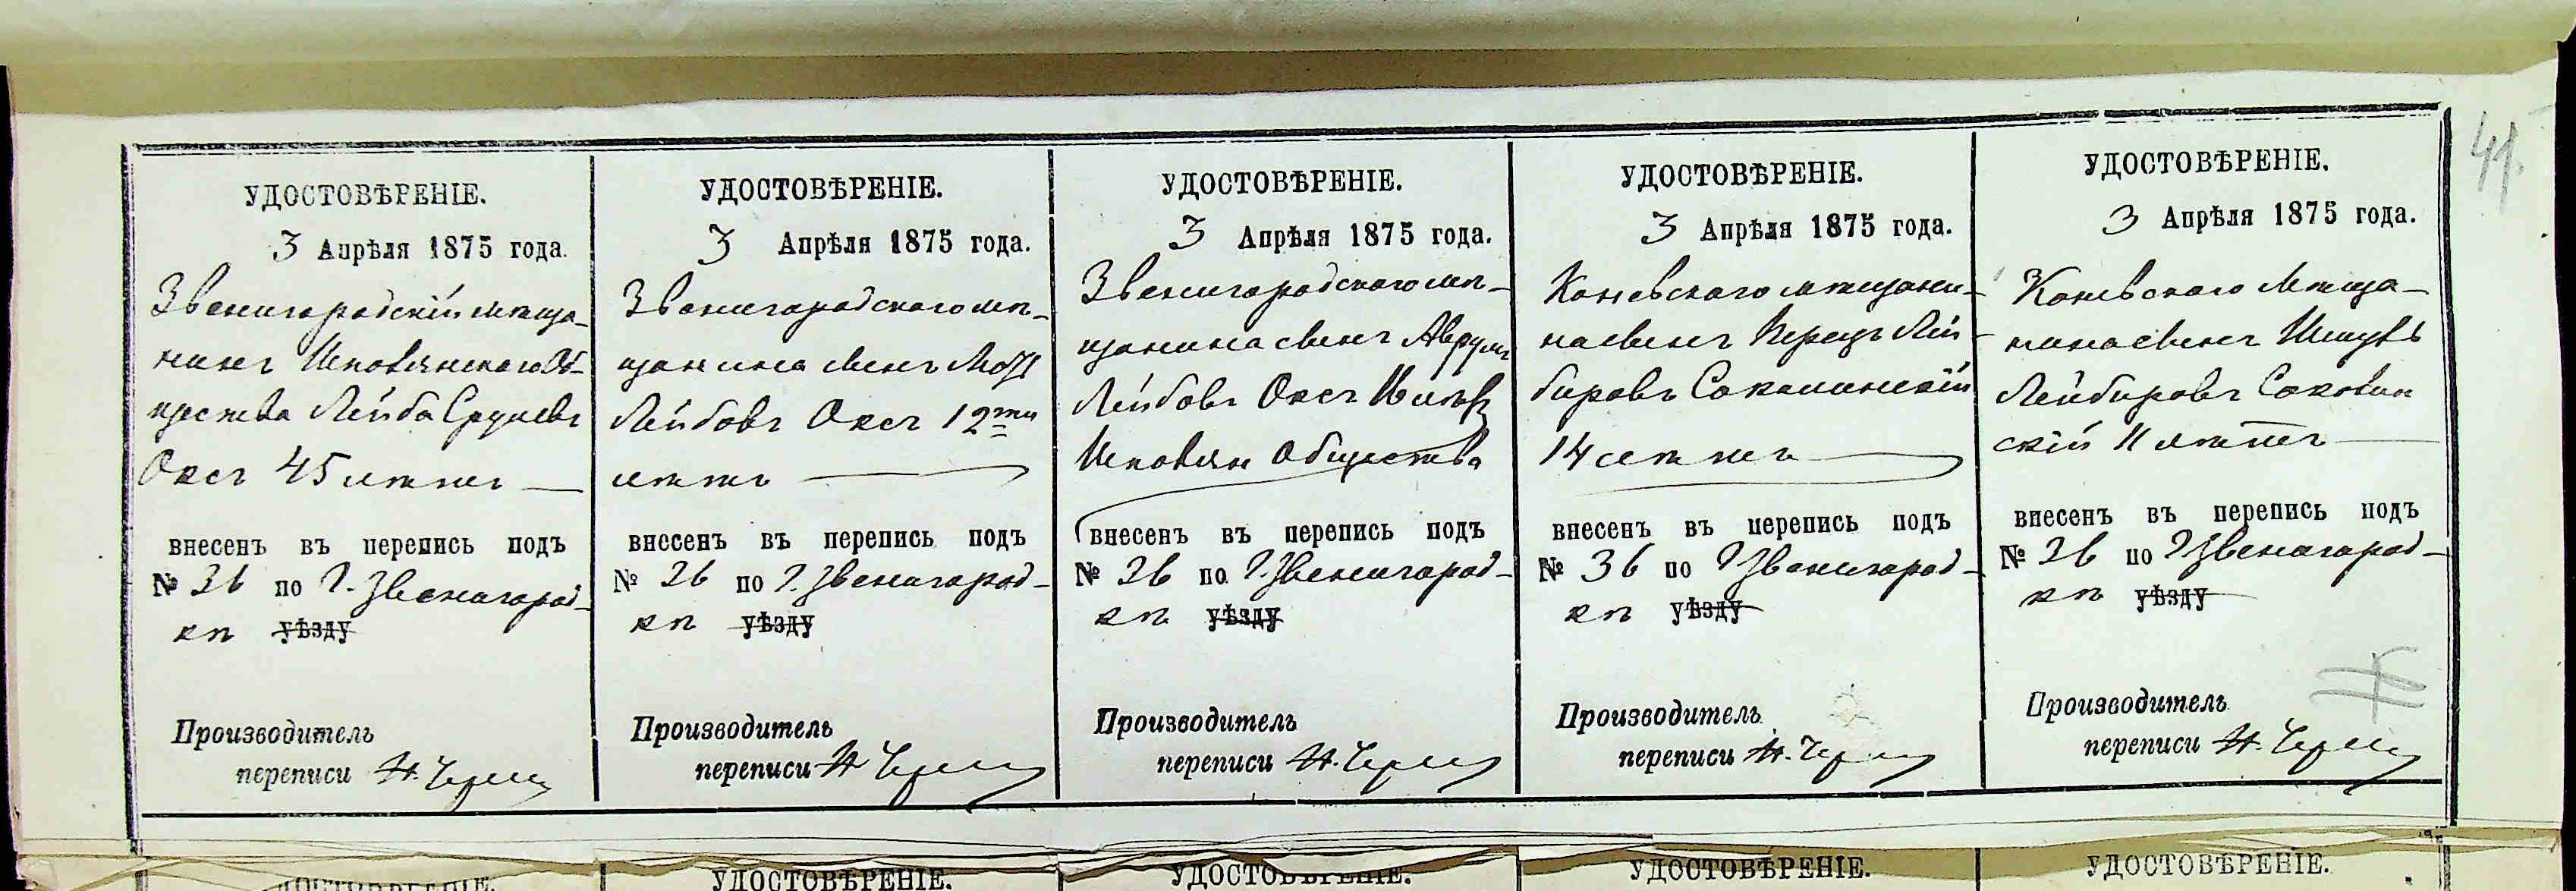 41.
УДОСТОВѢРЕНІЕ.
3 Апрѣля 1875 года.
Звенигородскій мѣща-
нинъ Шполянского Об-
щества Лейба Срулевъ
Оксъ 45 лѣтъ
внесенъ въ перепись подъ
№ 36 по г. Звенигород-
кѣ уѣзду
Производитель
переписи Н.
УДОСТОВѢРЕНІЕ.
3 Апрѣля 1875 года.
Звенигородского мѣ-
щанина сынъ
Лейбовъ Оксъ 12ти
лѣтъ
внесенъ въ перепись подъ
№ 36 по г. Звенигород-
кѣ уѣзду
Производитель
переписи Н.
УДОСТОВѢРЕНІЕ.
3 Апрѣля 1875 года.
Звенигородского мѣ-
щанина сынъ Аврумъ
Лейбовъ Оксъ
Шполян Общества
внесенъ въ перепись подъ
№ 36 по г. Звенигород-
кѣ уѣзду
Производитель
переписи Н.
УДОСТОВѢРЕНІЕ.
3 Апрѣля 1875 года.
Каневского мѣщани-
на сынъ Перецъ Лей-
бировъ
14 лѣтъ
внесенъ въ перепись подъ
№ 36 по г Звенигород-
кѣ уѣзду
Производитель
переписи Н.
УДОСТОВѢРЕНІЕ.
3 Апрѣля 1875 года.
Каневского Мѣща-
нина сынъ
Лейбировъ
скій 11 лѣтъ
внесенъ въ перепись подъ
№ 36 по г Звенигород-
кѣ уѣзду
Производитель
переписи Н.
УДОСТОВѢРЕНІЕ.
УДОСТОВѢРЕНІЕ.
УДОСТОВѢРЕНІЕ.
УДОСТОВѢРЕНІЕ.
УДОСТОВѢРЕНІЕ.